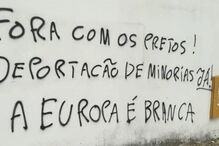 FORA COM OS PRETOS!
DEPORTAÇÃO DE MINORIAS JÁ!
A EUROPA É BRANCA